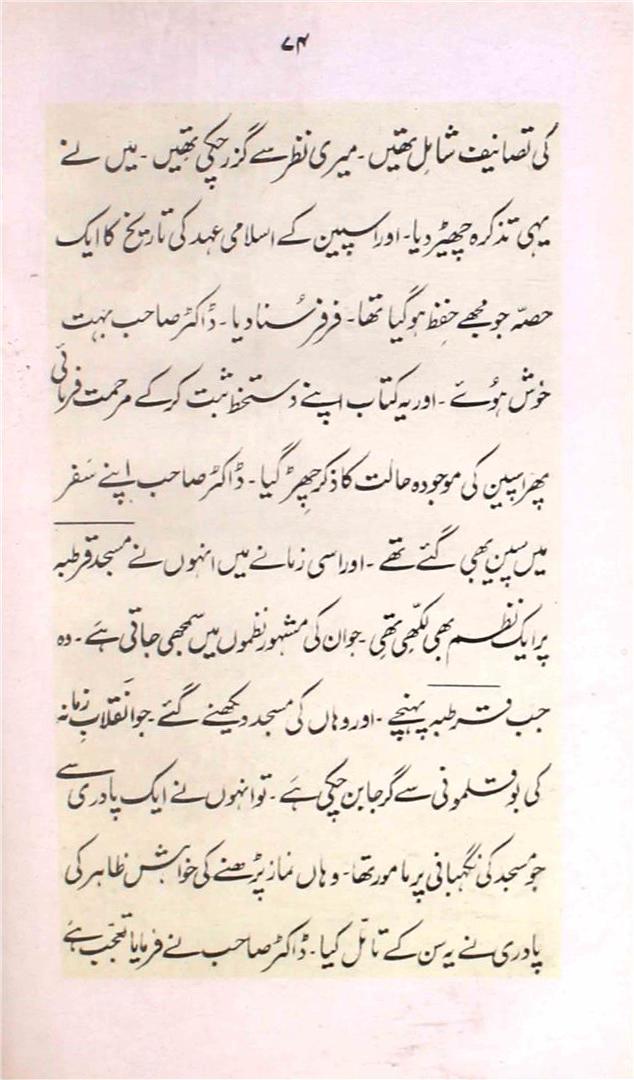 ۷۴
کی تصانیف شامل تھیں ۔ میری نظر سے گزر چکی تھیں ۔ میں نے
یہی تذکرہ چھیڑ دیا ۔ اور اسپین کے اسلامی عہد کی تاریخ کا ایک
حصّہ جو مجھے حِفظ ہو گیا تھا ۔ فرفر سُنا دیا ۔ ڈاکٹر صاحب بہت
خوش ہوُئے ۔ اور یہ کتاب اپنے دستخط ثبت کر کے مرحمت فرمائی
پھر اسپین کی موجودہ حالت کا ذکر چِھڑ گیا ۔ ڈاکٹر صاحب اپنے سَفر
میں سپین بھی گئے تھے ۔ اور اسی زمانے میں انہوں نے مسجد قرطبہ
پر ایک نظم بھی لکھّی تھی ۔ جو ان کی مشہور نظموں میں سمجھی جاتی ہَے ۔ وہ
جب قرطبہ پہنچے ۔ اور وہاں کی مسجد دیکھنے گئے ۔ جو انقلابِ زمانہ
کی بوقلمونی سے گرجا بن چکی ہَے ۔ تو انہوں نے ایک پادری سے
جو مسجد کی نگہبانی پر مامور تھا ۔ وہاں نماز پڑھنے کی خواہش ظاہر کی
پادری نے یہ سن کے تامّل کیا ۔ ڈاکٹر صاحب نے فرمایا تعجّب ہَے